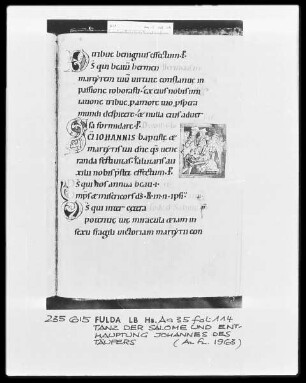 tribue benignus effectum. P
DS qui beatū hermen
martyrem tuū uirtute constantiae in
passione roborasti. ex eius nobis imi
tatione tribue p amore tuo pspera
mundi despicere. & nulla eius aduer
sa formidare. P
SCI IOHANNIS baptistae &
martyris tui dne qs uene
randa festiuitas. salutaris au
xilii nobis prestet effectum. P
DS qui nos annua beati
DS qui inter cetera
potentiae tuae miracula etiam in
sexu fragili uictoriam martyrii con
235 615 FULDA LB Hs. Aa 35 fol. 114
TANZ DER SALOME UND ENT-
HAUPTUNG JOHANNES DES
TÄUFERS (A. FL. 1963)